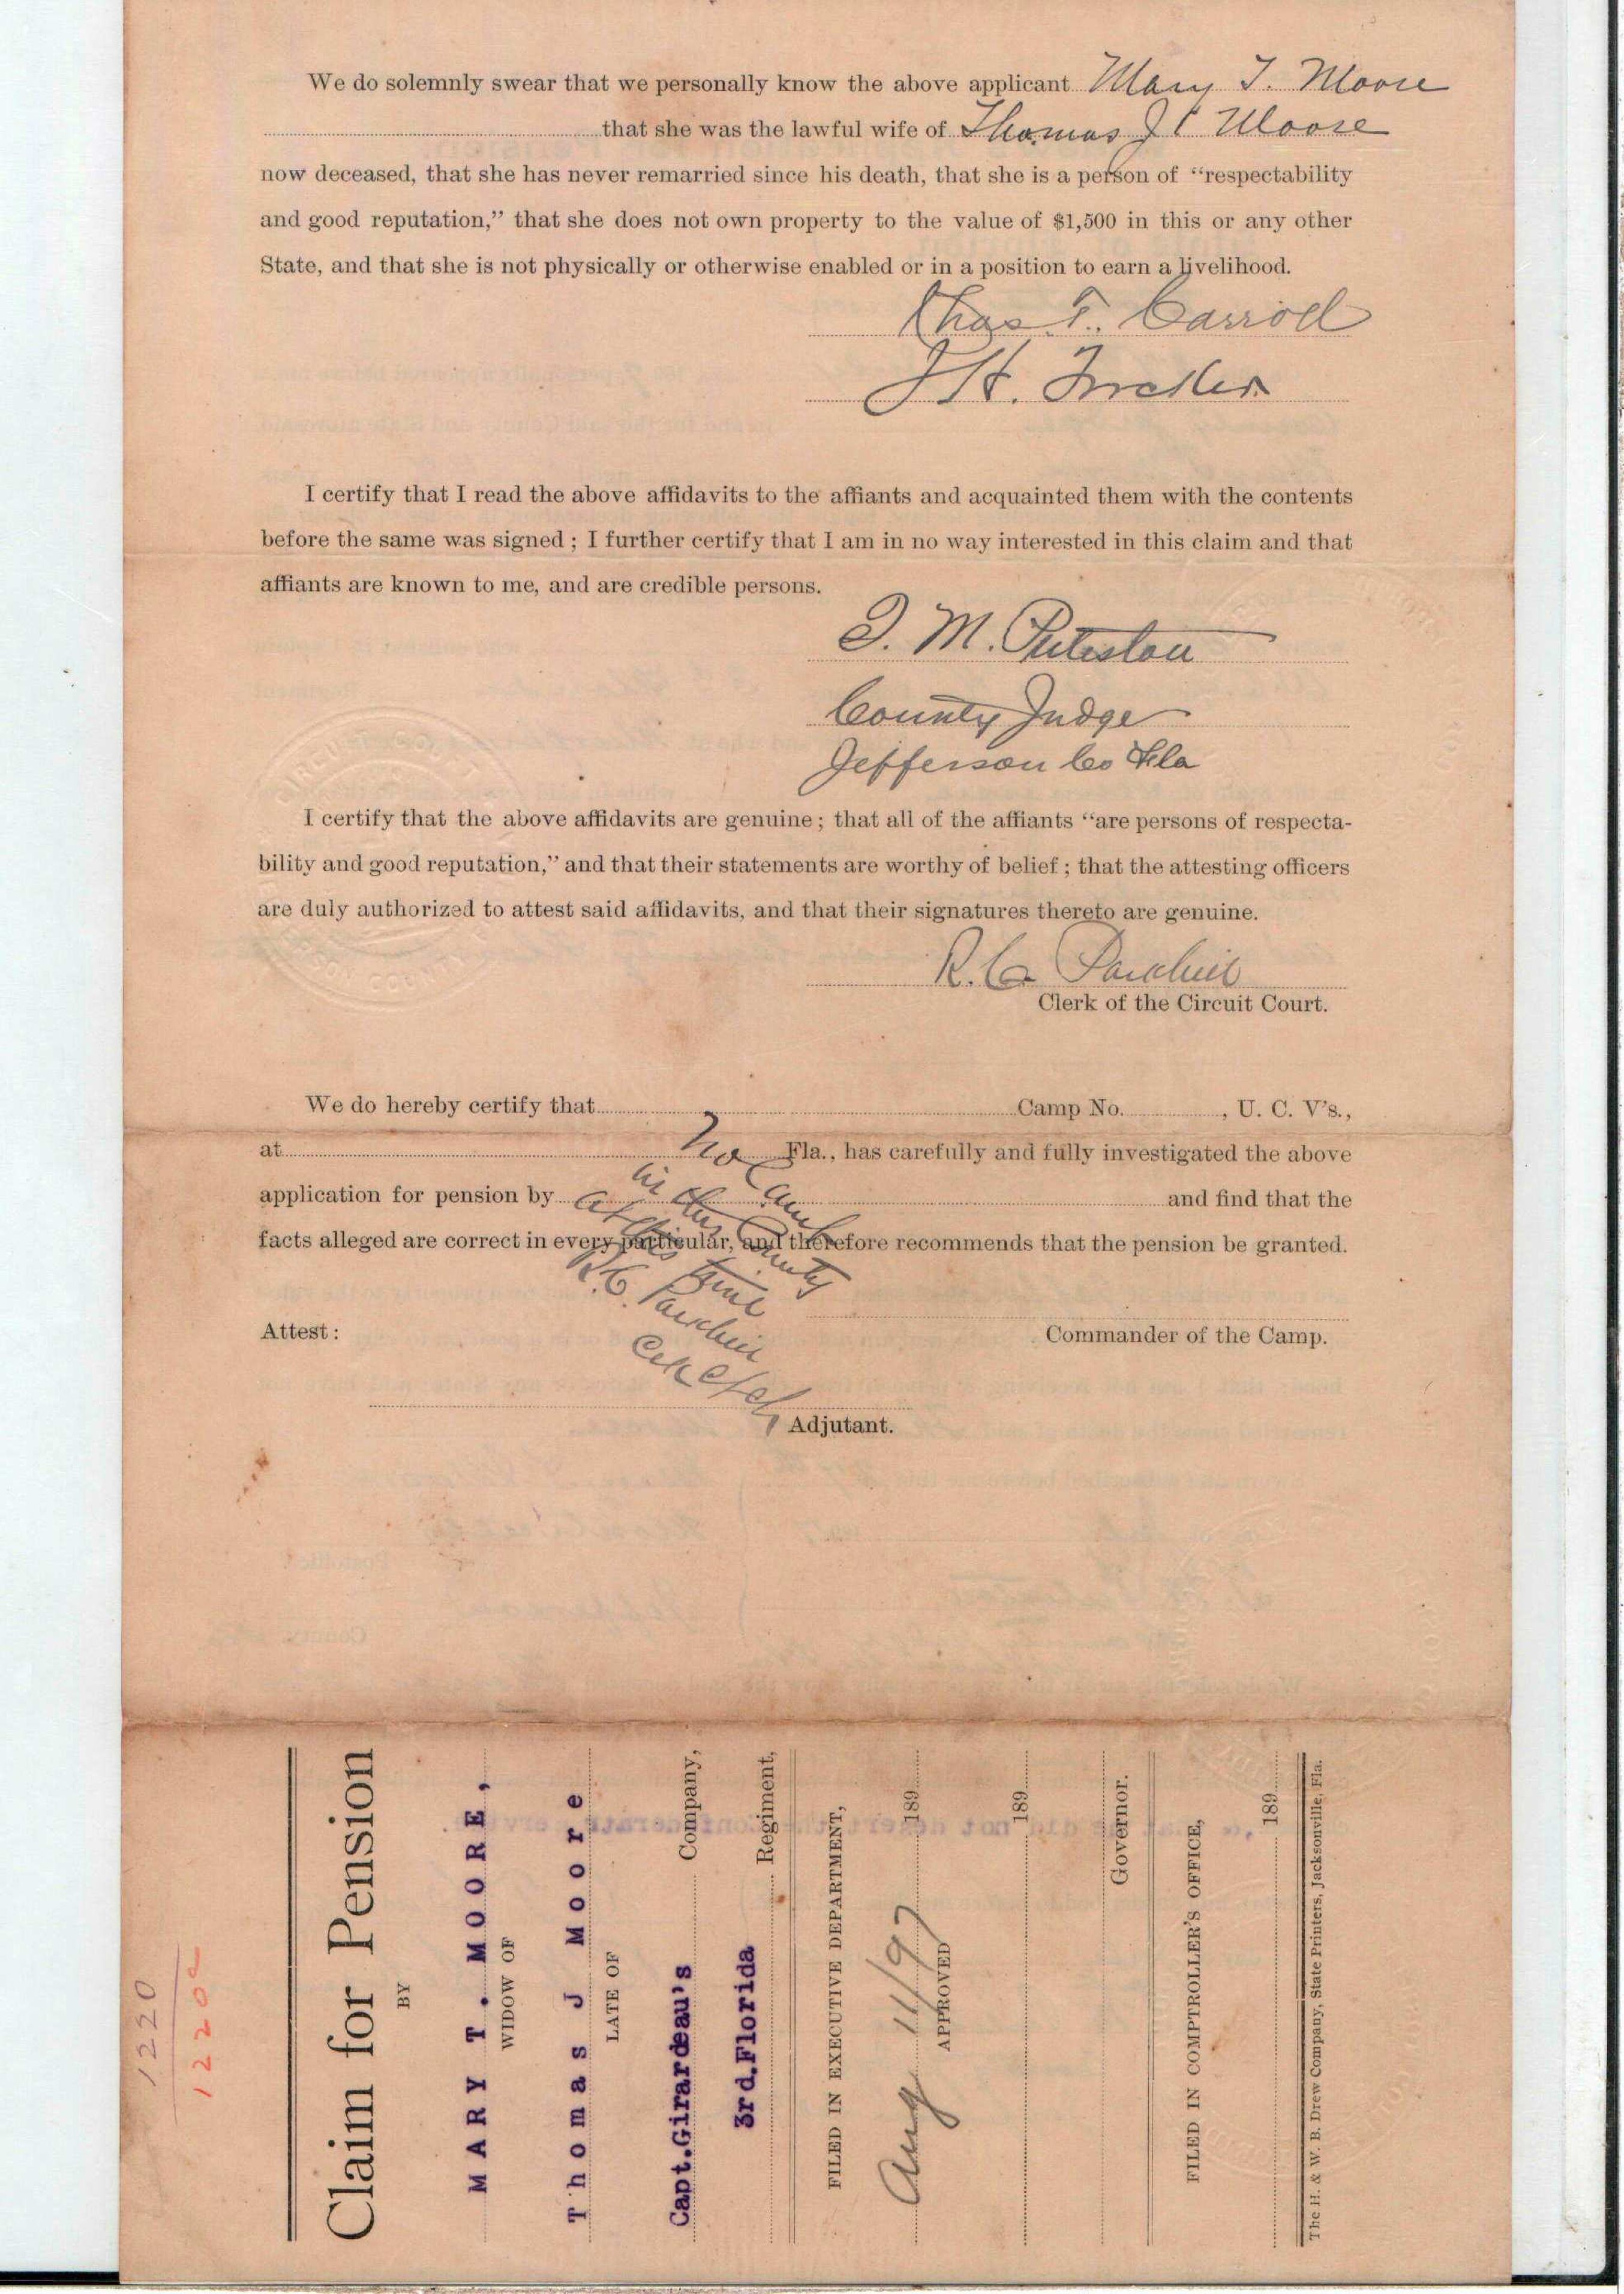 We do solemnly swear that we personally know the above applicant Mary T. Moore
that she was the lawful wife of Thomas J Moore
now deceased, that she has never remarried since his death, that she is a person of “respectability
and good reputation,” that she does not own property to the value of $1,500 in this or any other
State, and that she is not physically or otherwise enabled or in a position to earn a livelihood.
Chas. T. Carroll
J H. Tucker
I certify that I read the above affidavits to the affiants and acquainted them with the contents
before the same was signed; I further certify that I am in no way interested in this claim and that
affiants are known to me, and are credible persons.
T. M. Puleston
County Judge
Jefferson Co Fla
I certify that the above affidavits are genuine; that all of the affiants “are persons of respecta-
bility and good reputation,” and that their statements are worthy of belief; that the attesting officers
are duly authorized to attest said affidavits, and that their signatures thereto are genuine.
R. C. Parkhill
Clerk of the Circuit Court.
We do hereby certify that Camp No. , U. C. V's.,
at Fla., has carefully and fully investigated the above
application for pension by and find that the
facts alleged are correct in every particular, and therefore recommends that the pension be granted.
No Camp
in this County
at this time
R. C. Parkhill
Commander of the Camp.
Attest:
Adjutant.
1220
1220
Claim for Pension
BY
MARY T. MOORE,
WIDOW OF
Thomas J Moore
LATE OF
Capt.Girardeau's Company,
3rd.Florida Regiment,
FILED IN EXECUTIVE DEPARTMENT,
Aug 11/97 189
APPROVED
189
Governor.
FILED IN COMPTROLLER'S OFFICE,
189
The H. & W. B. Drew Company, State Printers, Jacksonville, Fla.